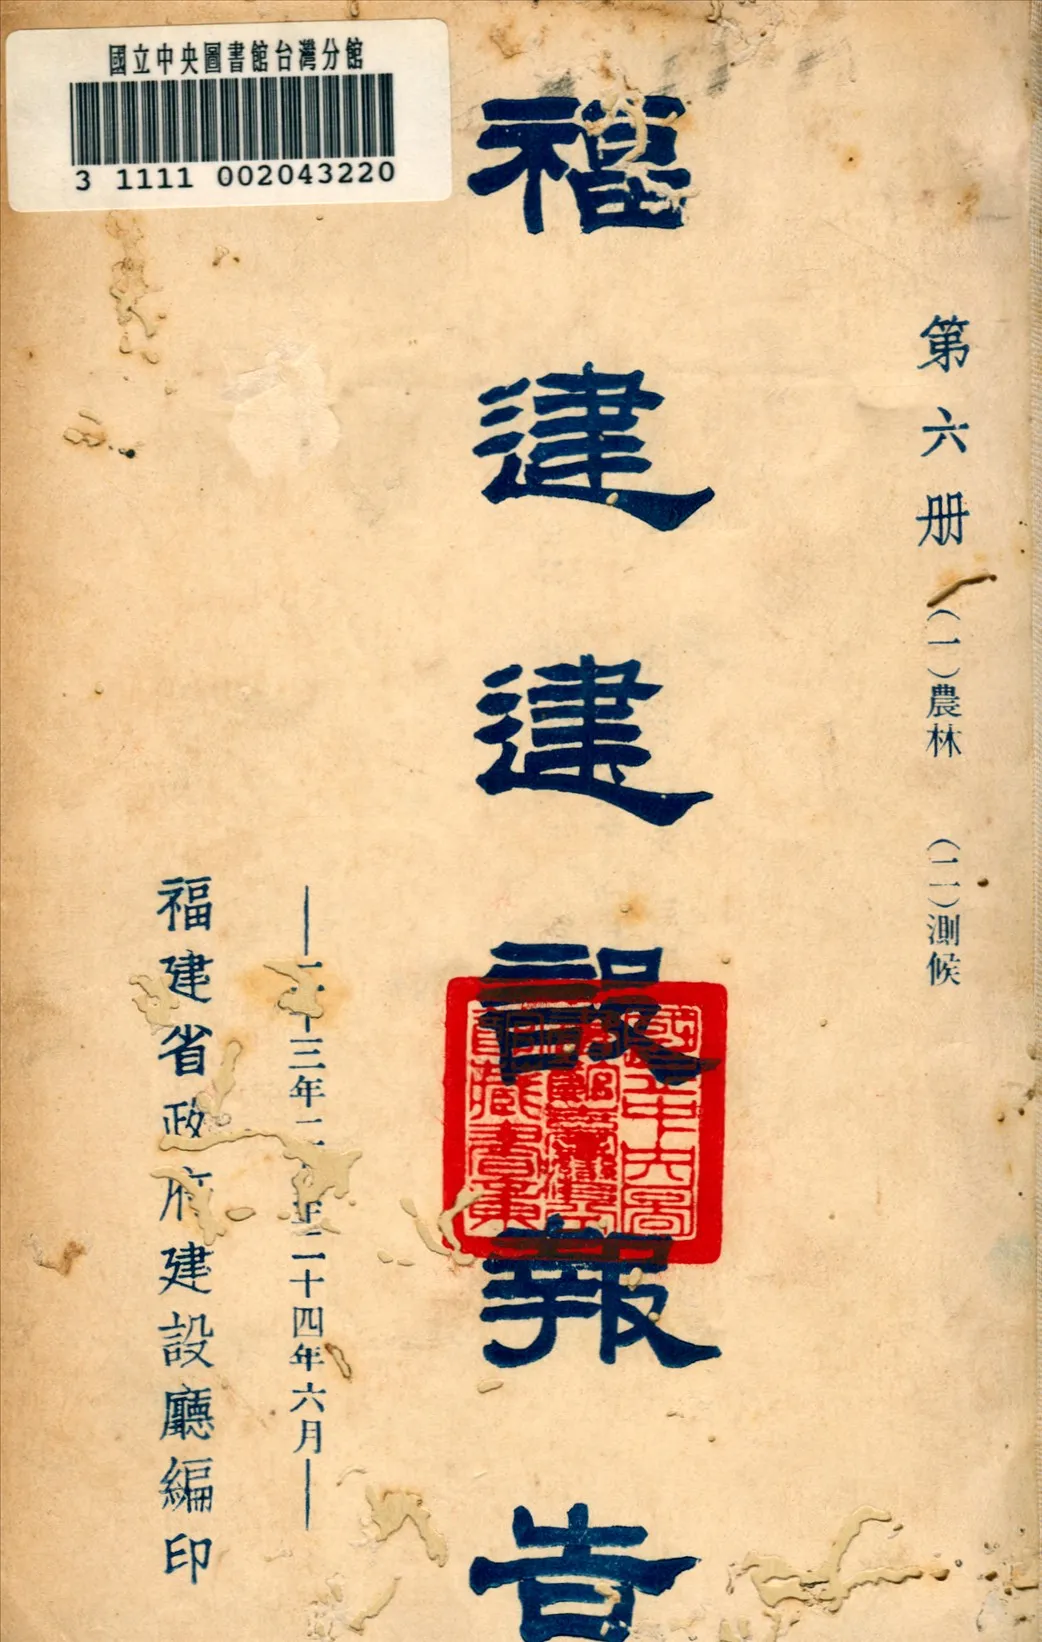 國立中央圖書館台灣分館
3 1111 002043220
第六册 (一)農林 (二)測候
福建建設報告
國立中央圖書館臺灣分館藏書章
十三年二 至二十四年六月
福建省政府建設廳編印